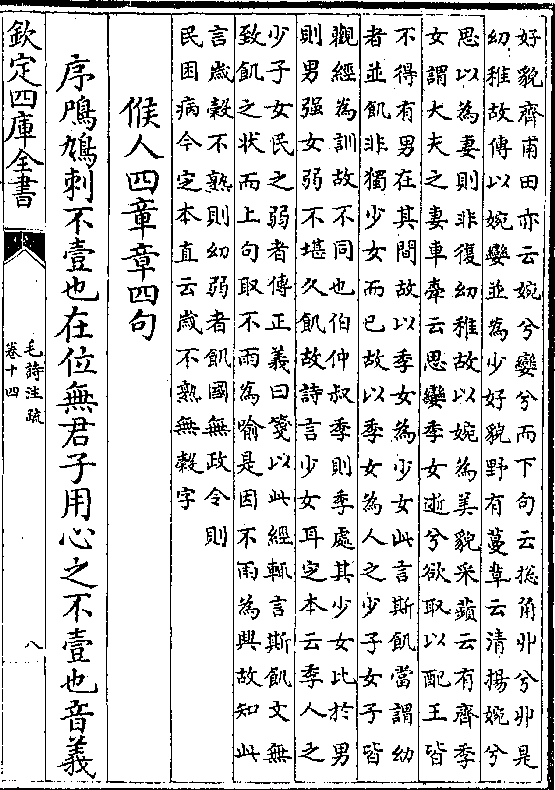 好貌齊甫田亦云婉兮孌兮而下句云緫角丱兮丱是
幼稚故傳以婉孌並為少好貌野有蔓草云清揚婉兮
思以為妻則非復幼稚故以婉為美貌采蘋云有齊季
女謂大夫之妻車舝云思孌季女逝兮欲取以配王皆
不得有男在其間故以季女為少女此言斯飢當謂幼
者並飢非獨少女而已故以季女為人之少子女子皆
觀經為訓故不同也伯仲叔季則季處其少女比於男
則男强女弱不堪久飢故詩言少女耳定本云季人之
少子女民之弱者傳正義曰箋以此經輒言斯飢文無
致飢之状而上句取不雨為喻是因不雨為興故知此
言歲穀不熟則幼弱者飢國無政令則
民困病今定本直云歲不熟無穀字
候人四章章四句
序鳲鳩刺不壹也在位無君子用心之不壹也音義
欽定四庫全書
毛詩注疏
卷十四
八